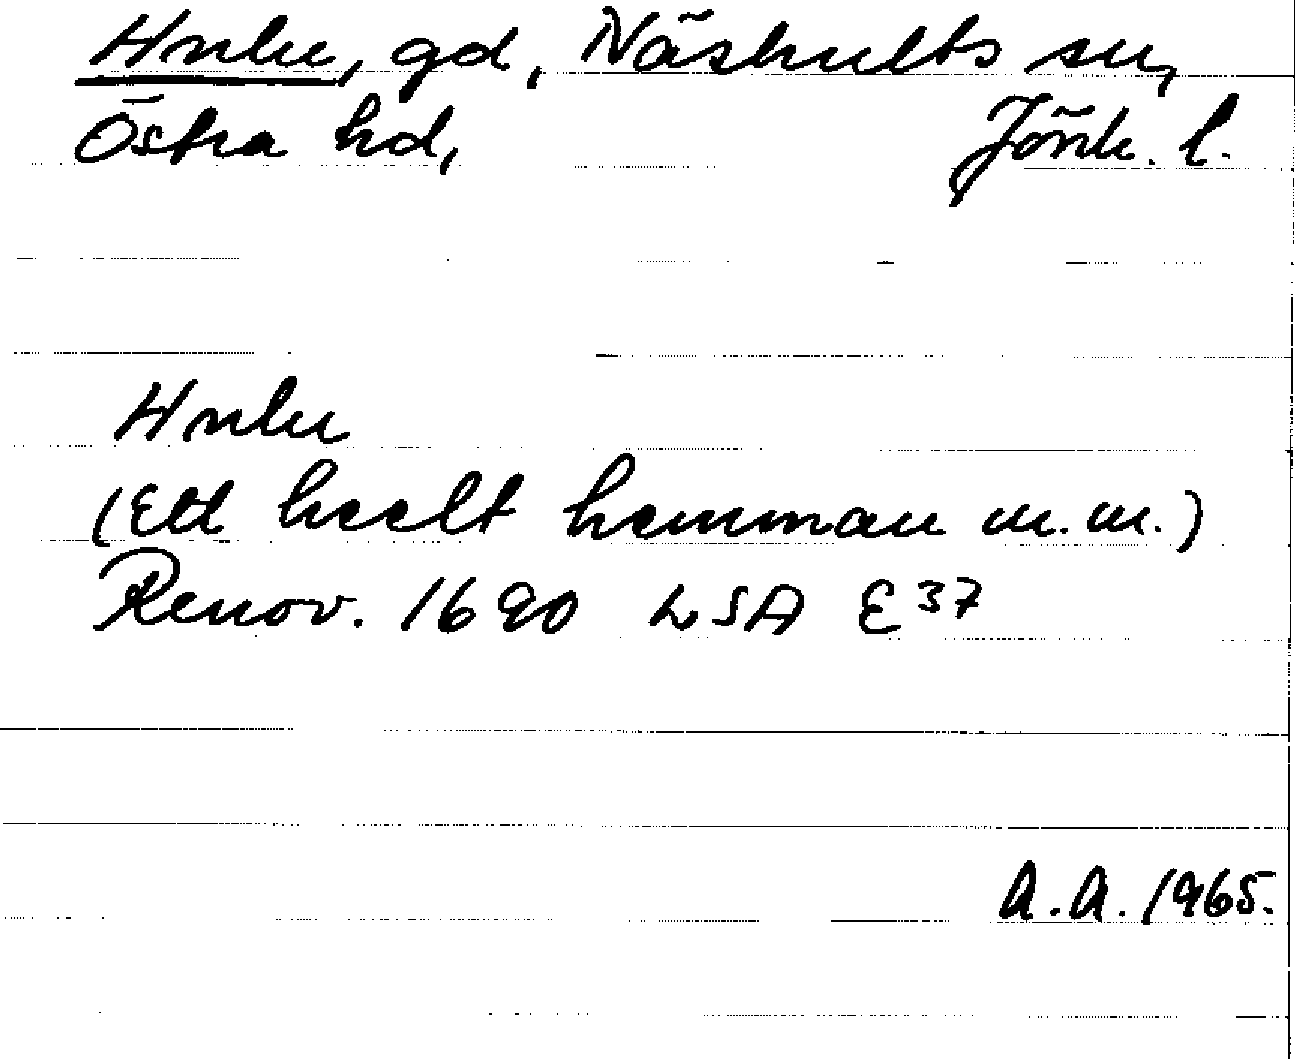 Hulu, gd, Näshults sn,
Östra hd, Jönk. l.
Hulu
(Ett heelt hemman m.m.)
Renov. 1690 LSA E 37
A.A. 1965.